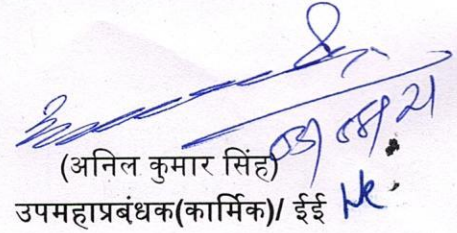 03/08/21
(अनिल कुमार सिंह)
उपमहाप्रबंधक(कार्मिक)/ ईई